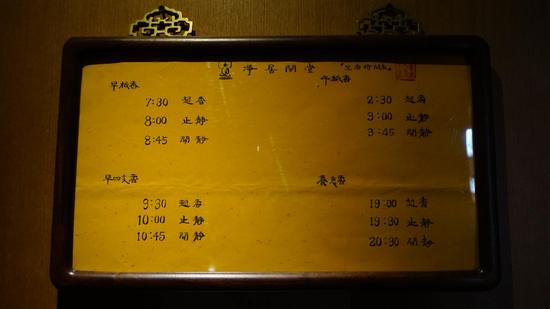 淨居關堂
坐香時間表
早板香
7:30 起香
8:00 止靜
8:45 開靜
午板香
2:30 起香
3:00 止靜
3:45 開靜
早四支香
9:30 起香
10:00 止靜
10:45 開靜
養息香
19:00 起香
19:30 止靜
20:30 開靜